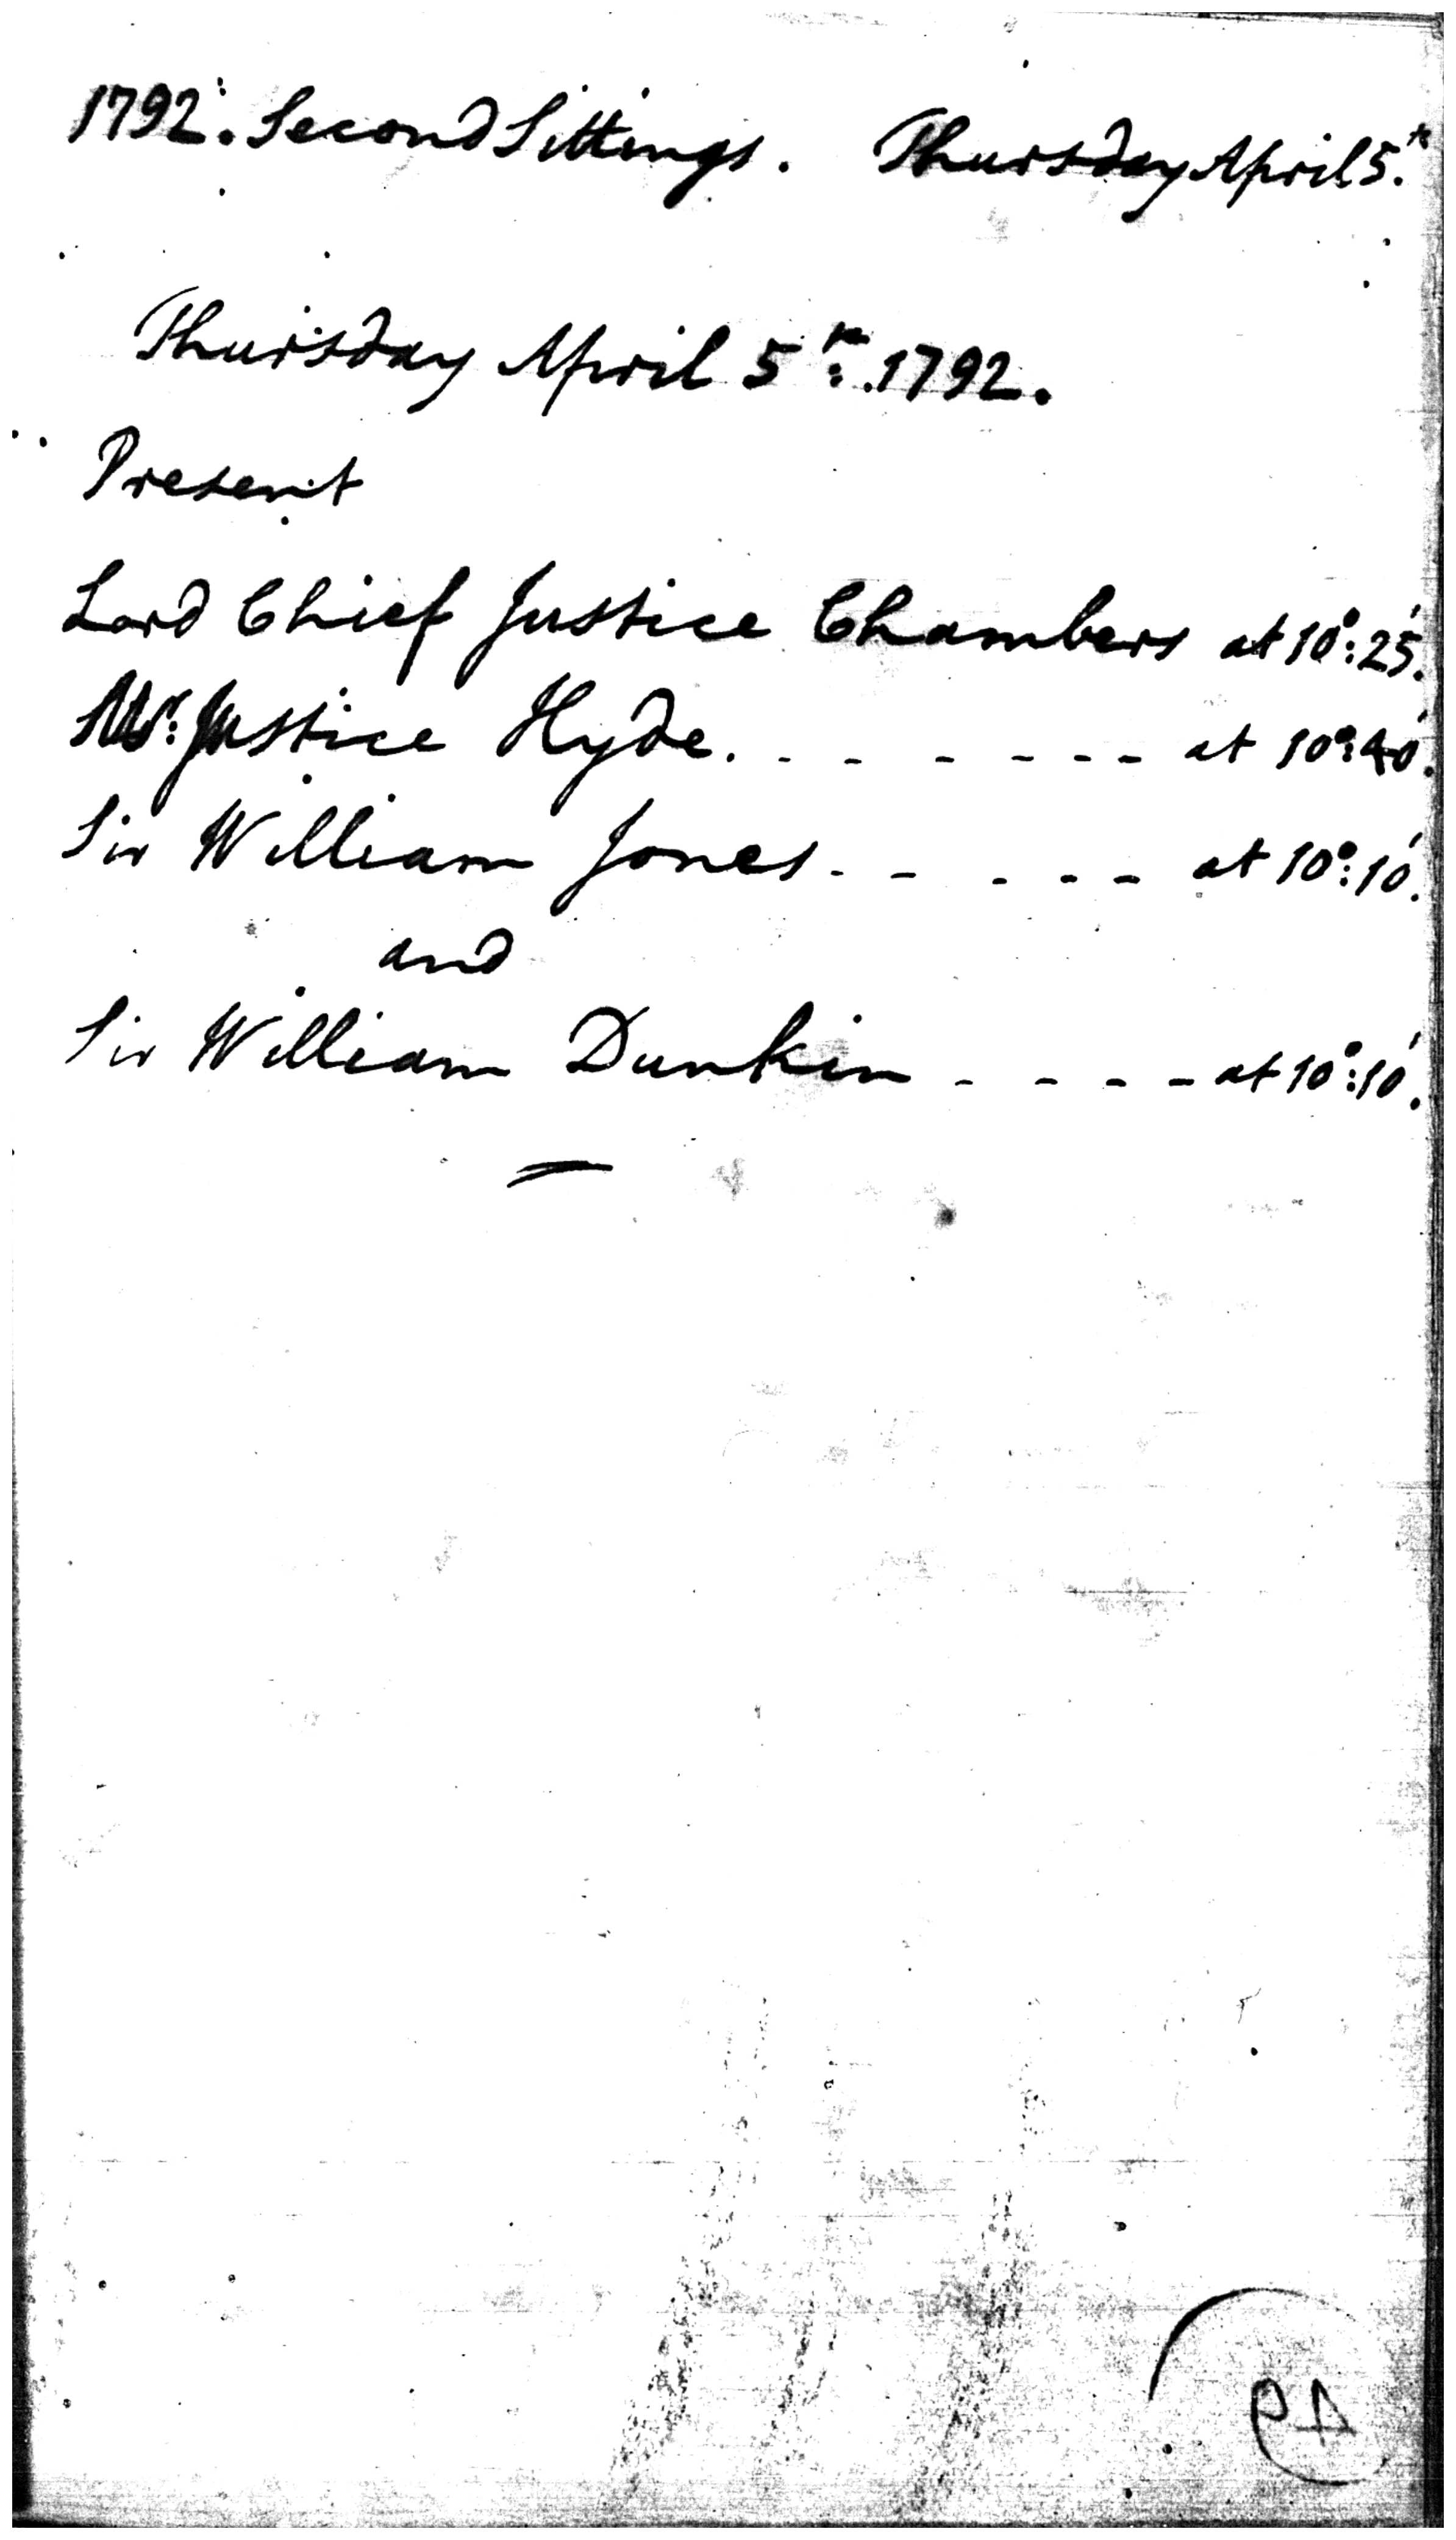 1792. Second Sittings. Thursday April 5.th
Thursday April 5th. 1792.
Present
Lord Chief Justice Chambers at 10°:25'.
Mr. Justice Hyde. - - - - - - - at 10°:40'.
Sir William Jones - - - - - at 10°:10'.
and
Sir William Dunkin - - - - at 10°:10'.
49